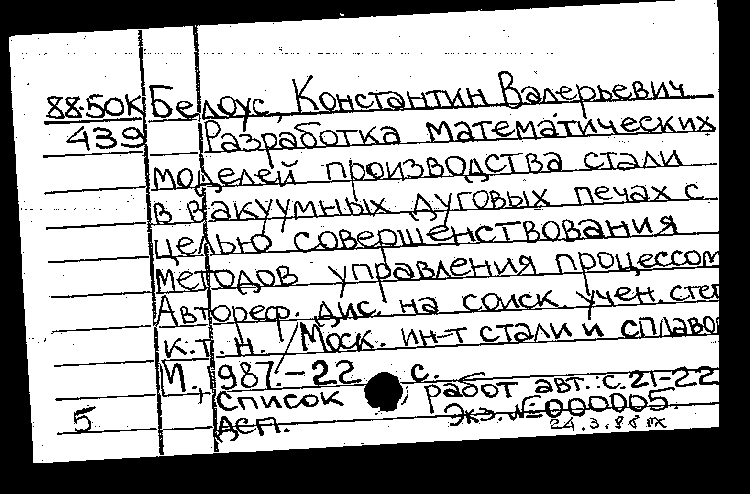 88.50К Белоус, Константин Валерьевич
439 Разработка математических
моделей производства стали
в вакуумных дуговых печах с
целью совершенствования
методов управления процессом
Автореф. дис. на соиск. учен. степ
к.т.н. / Моск. ин-т стали и сплаво
М., 1987. - 22 с.
Список работ авт.: с. 21-22
5 Деп. Экз. № 000005.
24.3.88